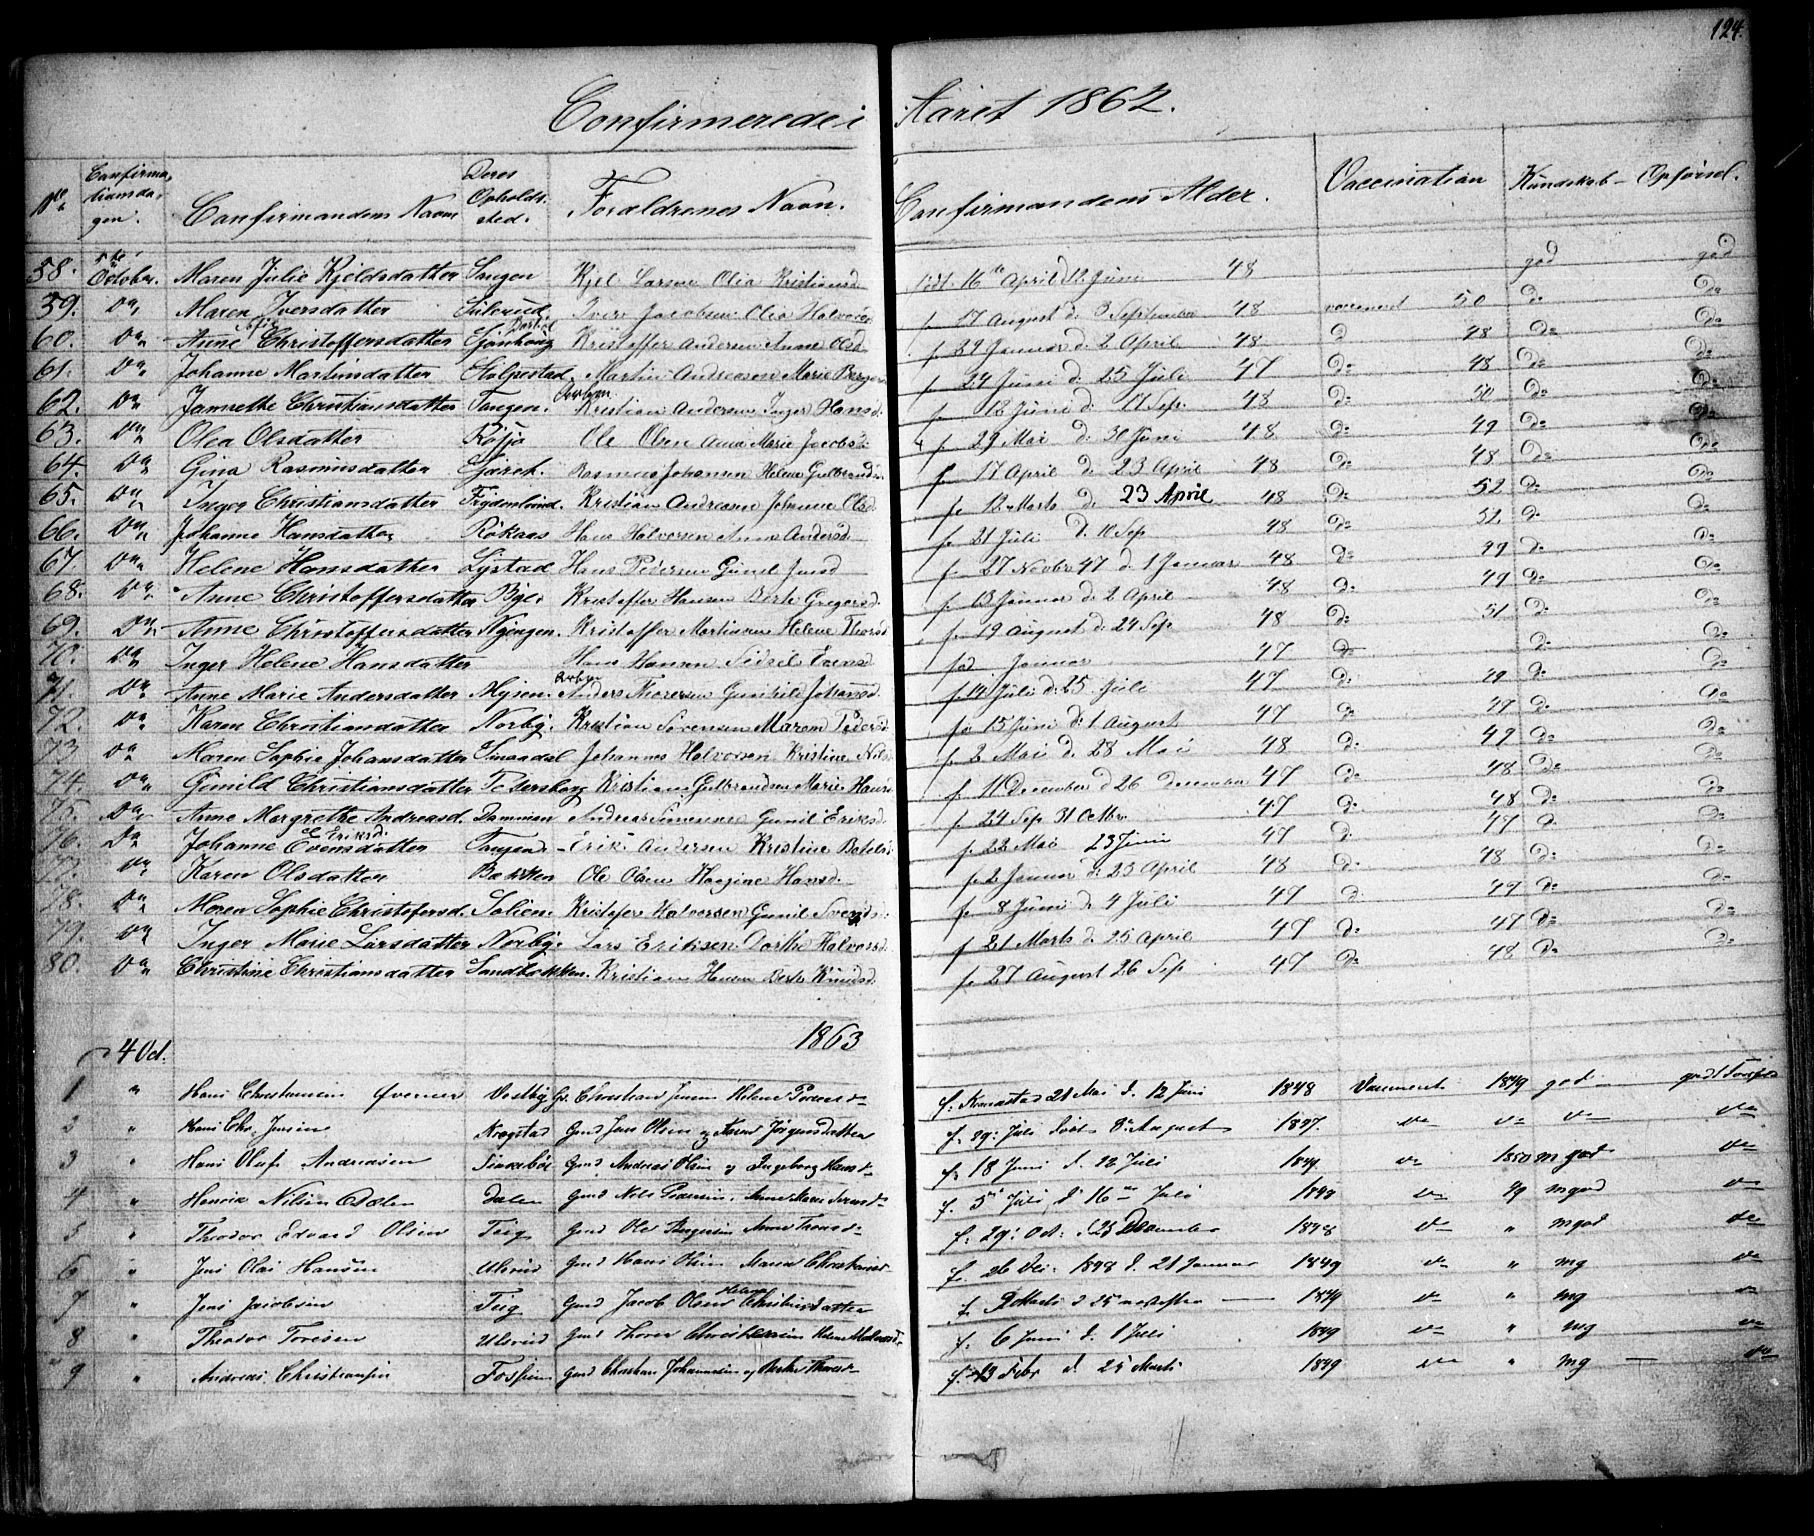 124.
Confirmerede i Aaret 1862.
No. Confirmationsdagen. Confirmandens Navn Deres Opholdssted. Forældrenes Navn. Confirmandens Alder. Vaccination Kundskab - Opførsel.
58. 5te October. Maren Julie Kjeldsdatter Tangen Kjel Larsen Olia Kristiansd. født 16de April d 12 Juni 48 god god
59. Do Maren Iversdatter Iver Jacobsen Olia Halvorsd f. 17 August d. 3 September 48 vaccineret 50 Do Do
60. Do Anne Sofie Christoffersdatter Kristoffer Andersen Anne Olsd f. 29 Januar d. 2 April 48 D 48 Do Do
61. Do Johanne Martinsdatter Stolpestad Martin Andreasen Marie f. 24 Juni d. 25 Juli 47 Do 48 Do Do
62. Do Jannethe Christiansdatter Tangen. Kristian Andersen Inger Hansd. f. 12 Juni d. 17 Sep. 48 Do 50 Do Do
63. Do Olea Olsdatter Røsjø Ole Olsen Anna Marie Jacobsd. f. 29 Mai d. 30 Juni 48 Do 49 Do Do
64. Do Gina Rasmusdatter Rasmus Johansen Helene Gulbrandsd. f. 17 April d. 23 April 48 Do 48 Do Do
65. Do Inger Christiansdatter Frydenlund. Kristian Andreasen Johanne Olsd. f. 12 Marts d. 23 April 48 Do 52 Do Do
66. Do Johanne Hansdatter Røkaas Hans Halvorsen Anne Andersd. f. 21 Juli d. 10 Sep 48 Do 52 Do Do
67. Do Helene Hansdatter Lystad Hans Pedersen Gunil Jensd f. 27 Novbr 47 d. 1 Januar 48 Do 49 Do Do
68. Do Anne Christoffersdatter Bye. Kristoffer Hansen Berte Gregersd. f. 13 Januar d. 2 April 48 Do 49 Do Do
69. Do Anne Christoffersdatter Nyengen. Kristoffer Martisen Helene Thorsd f. 19 August d. 24 Sep 48 Do 51 Do Do
70. Do Inger Helene Hansdatter Hans Hansen Sidsel Evensd fød Januar 47 Do Do Do
71. Do Anne Marie Andersdatter Mysen. Anders Gunhild Johansd. f. 14 Juli d. 25 Juli 47 Do 49 Do Do
72. Do Karen Christiansdatter Norby. Kristian Sørensen Maren Pedersd f. 15 Juni d. 1 August 47 Do 47 Do Do
73 Do Maren Sophie Johansdatter Johannes Halvorsen Kristine Nils f. 2 Mai d. 28 Mai 48 Do 49 Do Do
74. Do Gunild Christiansdatter Petersborg Kristian Gulbrandsen Marie Hansd f. 11 December d 26 December 47 Do 48 Do Do
75. Do Anne Margrethe Andreasd. Dammen Andreas Simensen Gunil Eriksd. f. 24 Sep. 31 Octbr 47 Do 48 Do Do
76. Do Johanne E Eriksd. Evensdatter Tangen Erik Andersen Kristine f. 22 Mai 23 Juni 47 D 47 Do Do
77. Do Karen Olsdatter Bakken Ole Olsen Hansd. f. 2 Januar d. 23 April 48 Do 48 Do Do
78. Do Maren Sophie Christofersd. Solien. Kristofer Halvorsen Gunil Svends f. 8 Juni d. 4 Juli 47 D. 49 Do Do
79. Do Inger Marie Larsdatter Norby. Lars Eriksen Dorthe Halvorsd. f. 21 Marts d. 25 April 47 Do 47 Do Do
80. Do Christine Christiansdatter Sandbækken. Kristian Hansen Berte Knudsd. f. 27 August 26 Sep 47 Do 48 Do Do
1863
4 Oct.
1 " Hans Christiansen Vestby Gr. Christian Jensen Helene Pedersd f. Kraakstad 21 Mai d. 12 Juni 1848 Vaccineret 1849 god
2 " Hans Chr. Jensen Krogstad Gmd Jens Olsen og Jørgensdatter f. 29 Juli døbt August 1847. do do do do
3 " Hans Oluf Andreasen Gmd Andreas Olsen og Ingeborg Hansd. f. 18 Juni d. 12 Juli do 1850 m god do
4 " Nilsen Dalen Gmd Nils Pedersen. Anne Marie f. 5te Juli, d 16de Juli do 49 mgod do
5 " Theodor Edvard Olsen Teig Gmd Ole f. 29. Oct. d 25 December 1848 do " mgod do
6 " Jens Olai Hansen Ulsrud Gmd Hans Olsen Maren Christiansd. f. 26 Dec. 1848 d. 21 Januar 1849 do " mg do
7 " Jens Jacobsen Teig Gmd Jacob Olsen Helene Christiansdatter f. Marts d 25 1849 do " mg do
8 " Theodor Toresen Ulsrud Gmd Thorer Christiansen Helene f. 6 Juni d. 1 Juli 1849 do " mg do
9 " Andreas Christiansen Gmd Christian Johannesen og Berthe Thoresd. f. 13 Febr d. 25 Marts 1849 do " mg do